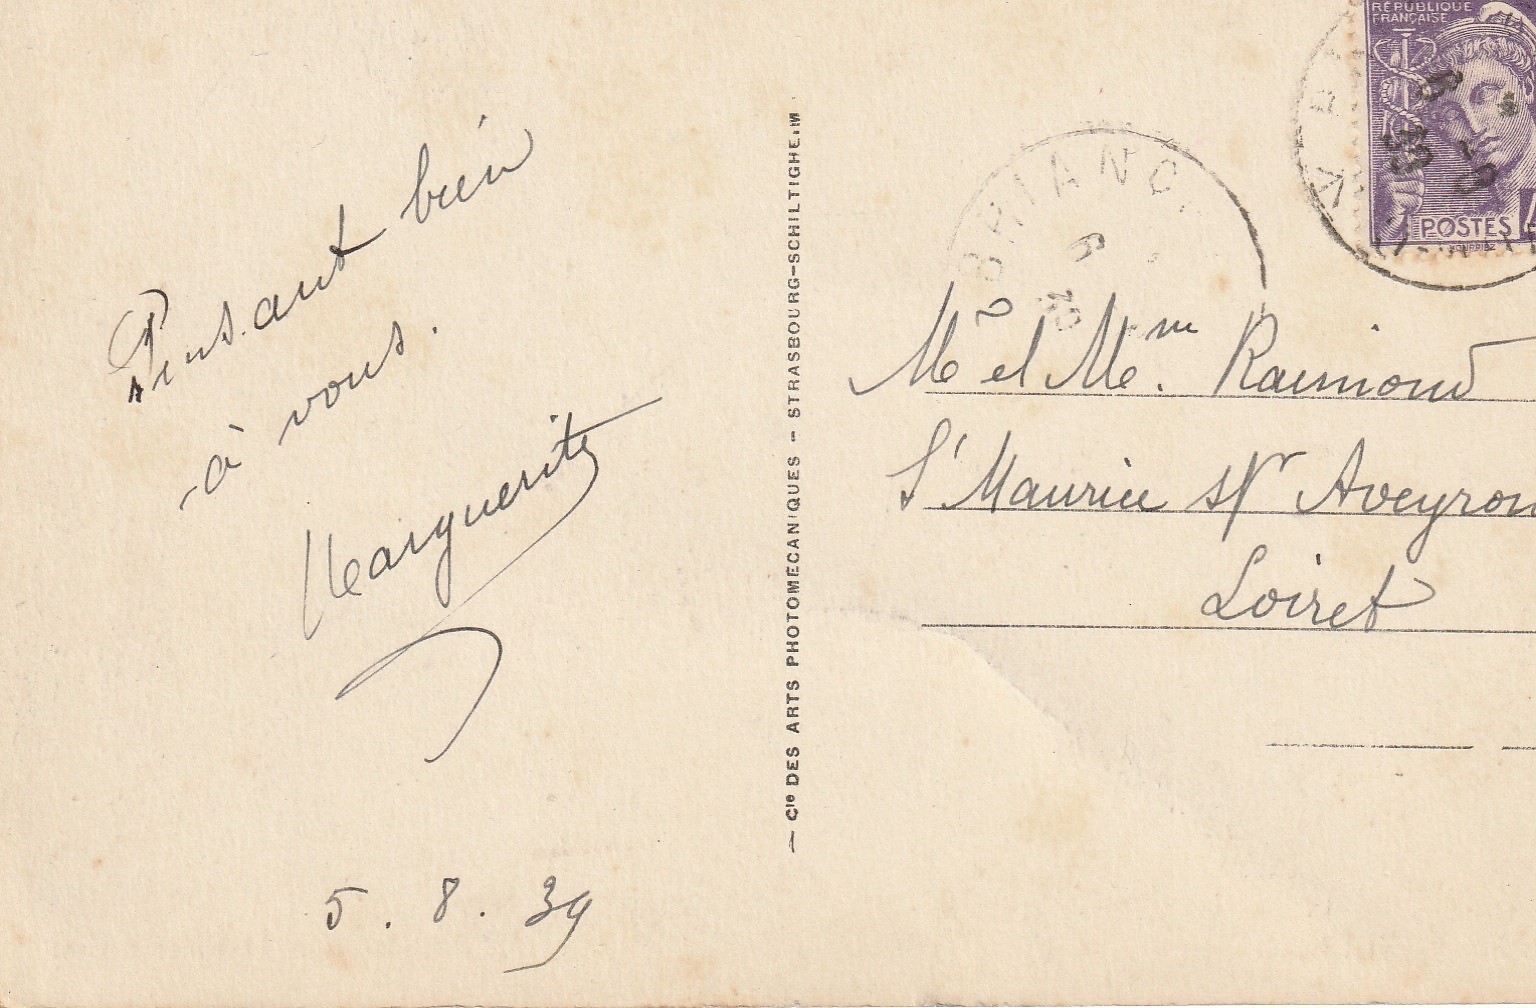 Pensant bien
à vous.
Marguerite
5.8.39
— Cie DES ARTS PHOTOMECANIQUES — STRASBOURG-SCHILTIGHEIM
RÉPUBLIQUE
FRANÇAISE
POSTES
BRIANC
Mr et Mme. Raimond
St Maurice s/r Aveyron
Loiret